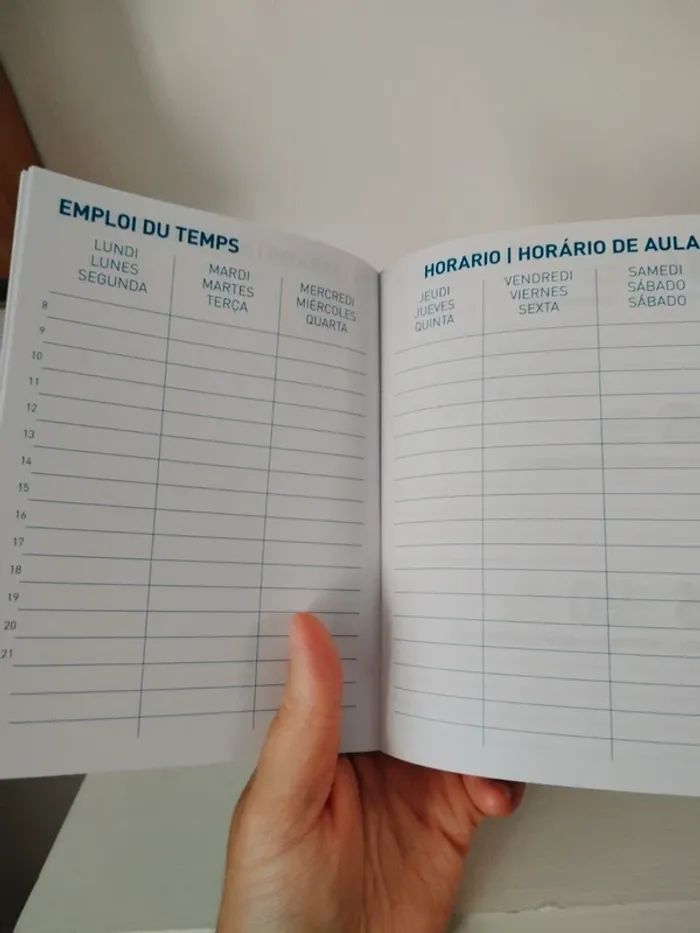 EMPLOI DU TEMPS
LUNDI
LUNES
SEGUNDA
MARDI
MARTES
TERÇA
MERCREDI
MIÉRCOLES
QUARTA
8
9
10
11
12
13
14
15
16
17
18
19
20
21
HORARIO | HORÁRIO DE AULA
JEUDI
JUEVES
QUINTA
VENDREDI
VIERNES
SEXTA
SAMEDI
SÁBADO
SÁBADO